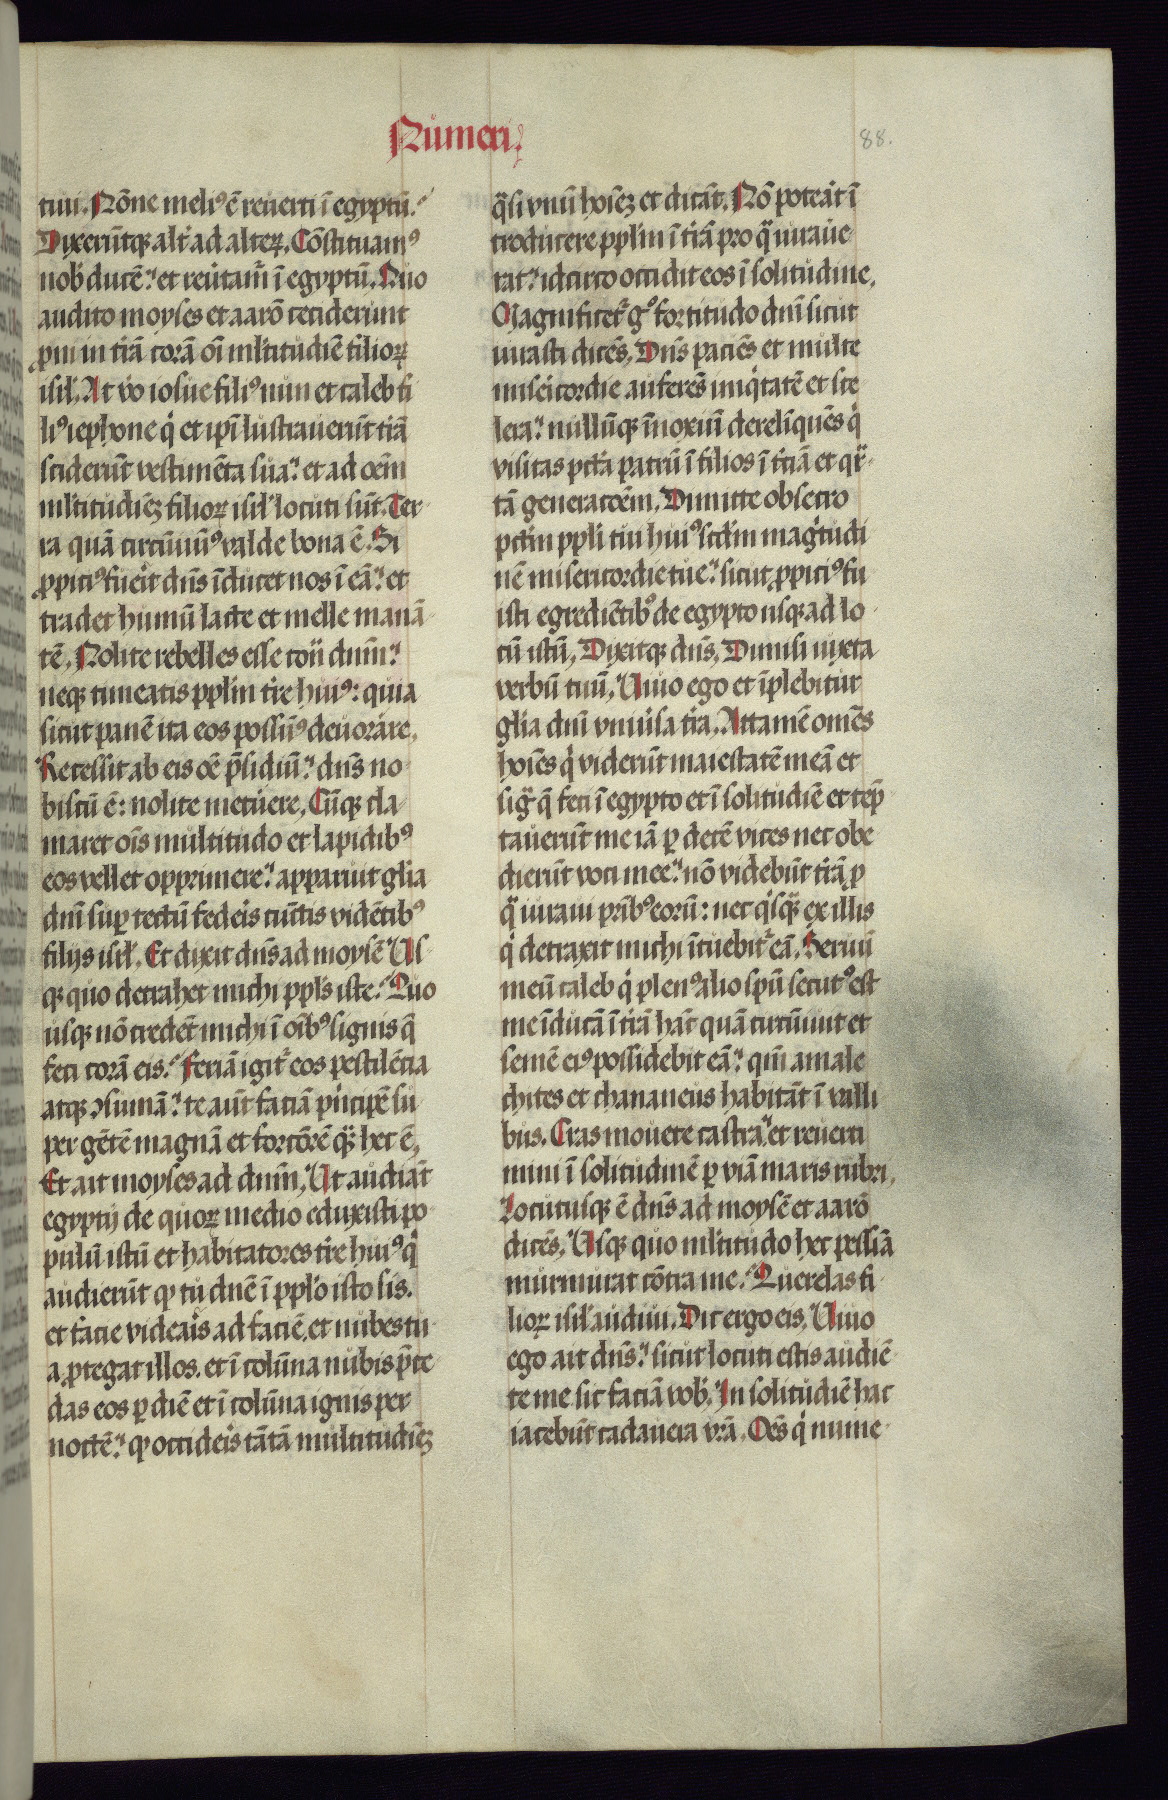 Numeri
88.
tiui. Nōne meliꝰ ē reuerti ī egyptū.
Dixerūtqꝫ alt̓ ad alteꝝ. Cōstituamꝰ
nob̓ ducē: et reūtam̄ ī egyptū. Quo
audito moyses et aarō ceciderunt
ꝓni in t̓rā corā oī ml̓titudiē filioꝝ
isrl̓. At v̊o iosue filiꝰ nun et caleb fi
liꝰ iephone qͥ et ip̄i lustrauerūt t̓rā
sciderūt vestimēta sua: et ad oēm
ml̓titudiēꝫ filioꝝ isrl̓ locuti sūt. Ter
ra quā circūiuimꝰ valde bona ē. Si
ꝓpiciꝰ fuẻit dn̄s īducet nos ī eā: et
tradet humū lacte et melle manā
tē. Nolite rebelles esse cōͣ dn̄m:
neqꝫ timeatis ppl̓m t̓re huiꝰ: quia
sicut panē ita eos possumꝰ deuorare.
Recessit ab eis oē p̄sidiū: dn̄s no
biscū ē: nolite metuere. Cūqꝫ cla
maret oīs multitudo et lapidibꝰ
eos vellet opprimere: apparuit gl̓ia
dn̄i suꝑ tectū federis cūctis vidētibꝰ
filijs isrl̓. Et dixit dn̄s ad moysē Us
qꝫ quo detrahet michi ppl̓s iste. Quo
usqꝫ nō credēt michi ī oīb̓ꝰ signis q̄
feci corā eis. Feriā igit̓ eos pestilēcia
atqꝫ ꝯsumā: te aūt faciā p̓ncipē su
per gētē magnā et forciorē qͣꝫ hec ē.
Et ait moyses ad dn̄m. Ut audiāt
egyptij de quoꝝ medio eduxisti po
pulū istū et habitatores t̓re huiꝰ qͥ
audierūt ꝙ tu dn̄e ī ppl̓o isto sis.
et facie videaris ad faciē, et nubes tu
a ꝓtegat illos. et ī colūna nubis p̄ce
das eos ꝑ diē et ī colūna ignis per
noctē: ꝙ occideris tātā multitudiēꝫ
qͣsi vnū hoīeꝫ et dicāt. Nō poterat ī
troducere ppl̓m ī t̓rā pro qͣ iuraue
rat: idcirco occidit eos ī solitudine.
Magnificet̓ gͦ fortitudo dn̄i sicut
iurasti dicēs. Dn̄s paciēs et multe
misericordie auferēs iniqͥtatē et sce
lera: nullūqꝫ īnoxiū derelīquēs qͥ
visitas pctā patrū ī filios ī t̓ciā et qͣr
tā generacōēm. Dimitte obsecro
pctm̄ ppl̓i tui huiꝰ scd̓m magͥtudi
nē misericordie tue: sicut ꝓpiciꝰ fu
isti egrediētibꝰ de egypto usqꝫ ad lo
cū istū. Dixitqꝫ dn̄s. Dimisi iuxta
verbū tuū. Uiuo ego et īplebitur
gl̓ia dn̄i vniūsa t̓ra. Attamē omēs
hoīes qͥ viderūt maiestatē meā et
sigͣ q̄ feci ī egypto et ī solitudiē et tēp
tauerūt me iā ꝑ decē vices nec obe
dierūt voci mee: nō videbūt t̓rā ꝓ
qͣ iuraui pr̄ib̓ꝰ eorū: nec qͥsqͣ ex illis
qͥ detraxit michi ītuebit̓ eā. Seruū
meū caleb qͥ plenꝰ alio sp̄u secutꝰ est
me īducā ī t̓rā hāc quā circūiuit et
semē eiꝰ possidebit eā: qm̄ amale
chites et chananeus habitāt ī valli
bus. Cras mouete castra: et reuerti
mini ī solitudinē ꝑ viā maris rubri.
Locutusqꝫ ē dn̄s ad moysē et aarō
dicēs. Usqꝫ quo ml̓titudo hec pessīa
murmurat cōtra me. Querelas fi
lioꝝ isrl̓ audiui. Dic ergo eis. Uiuo
ego ait dn̄s: sicut locuti estis audiē
te me sic faciā vob̓. In solitudiē hac
iacebūt cadauera vr̄a. Oēs qͥ nume